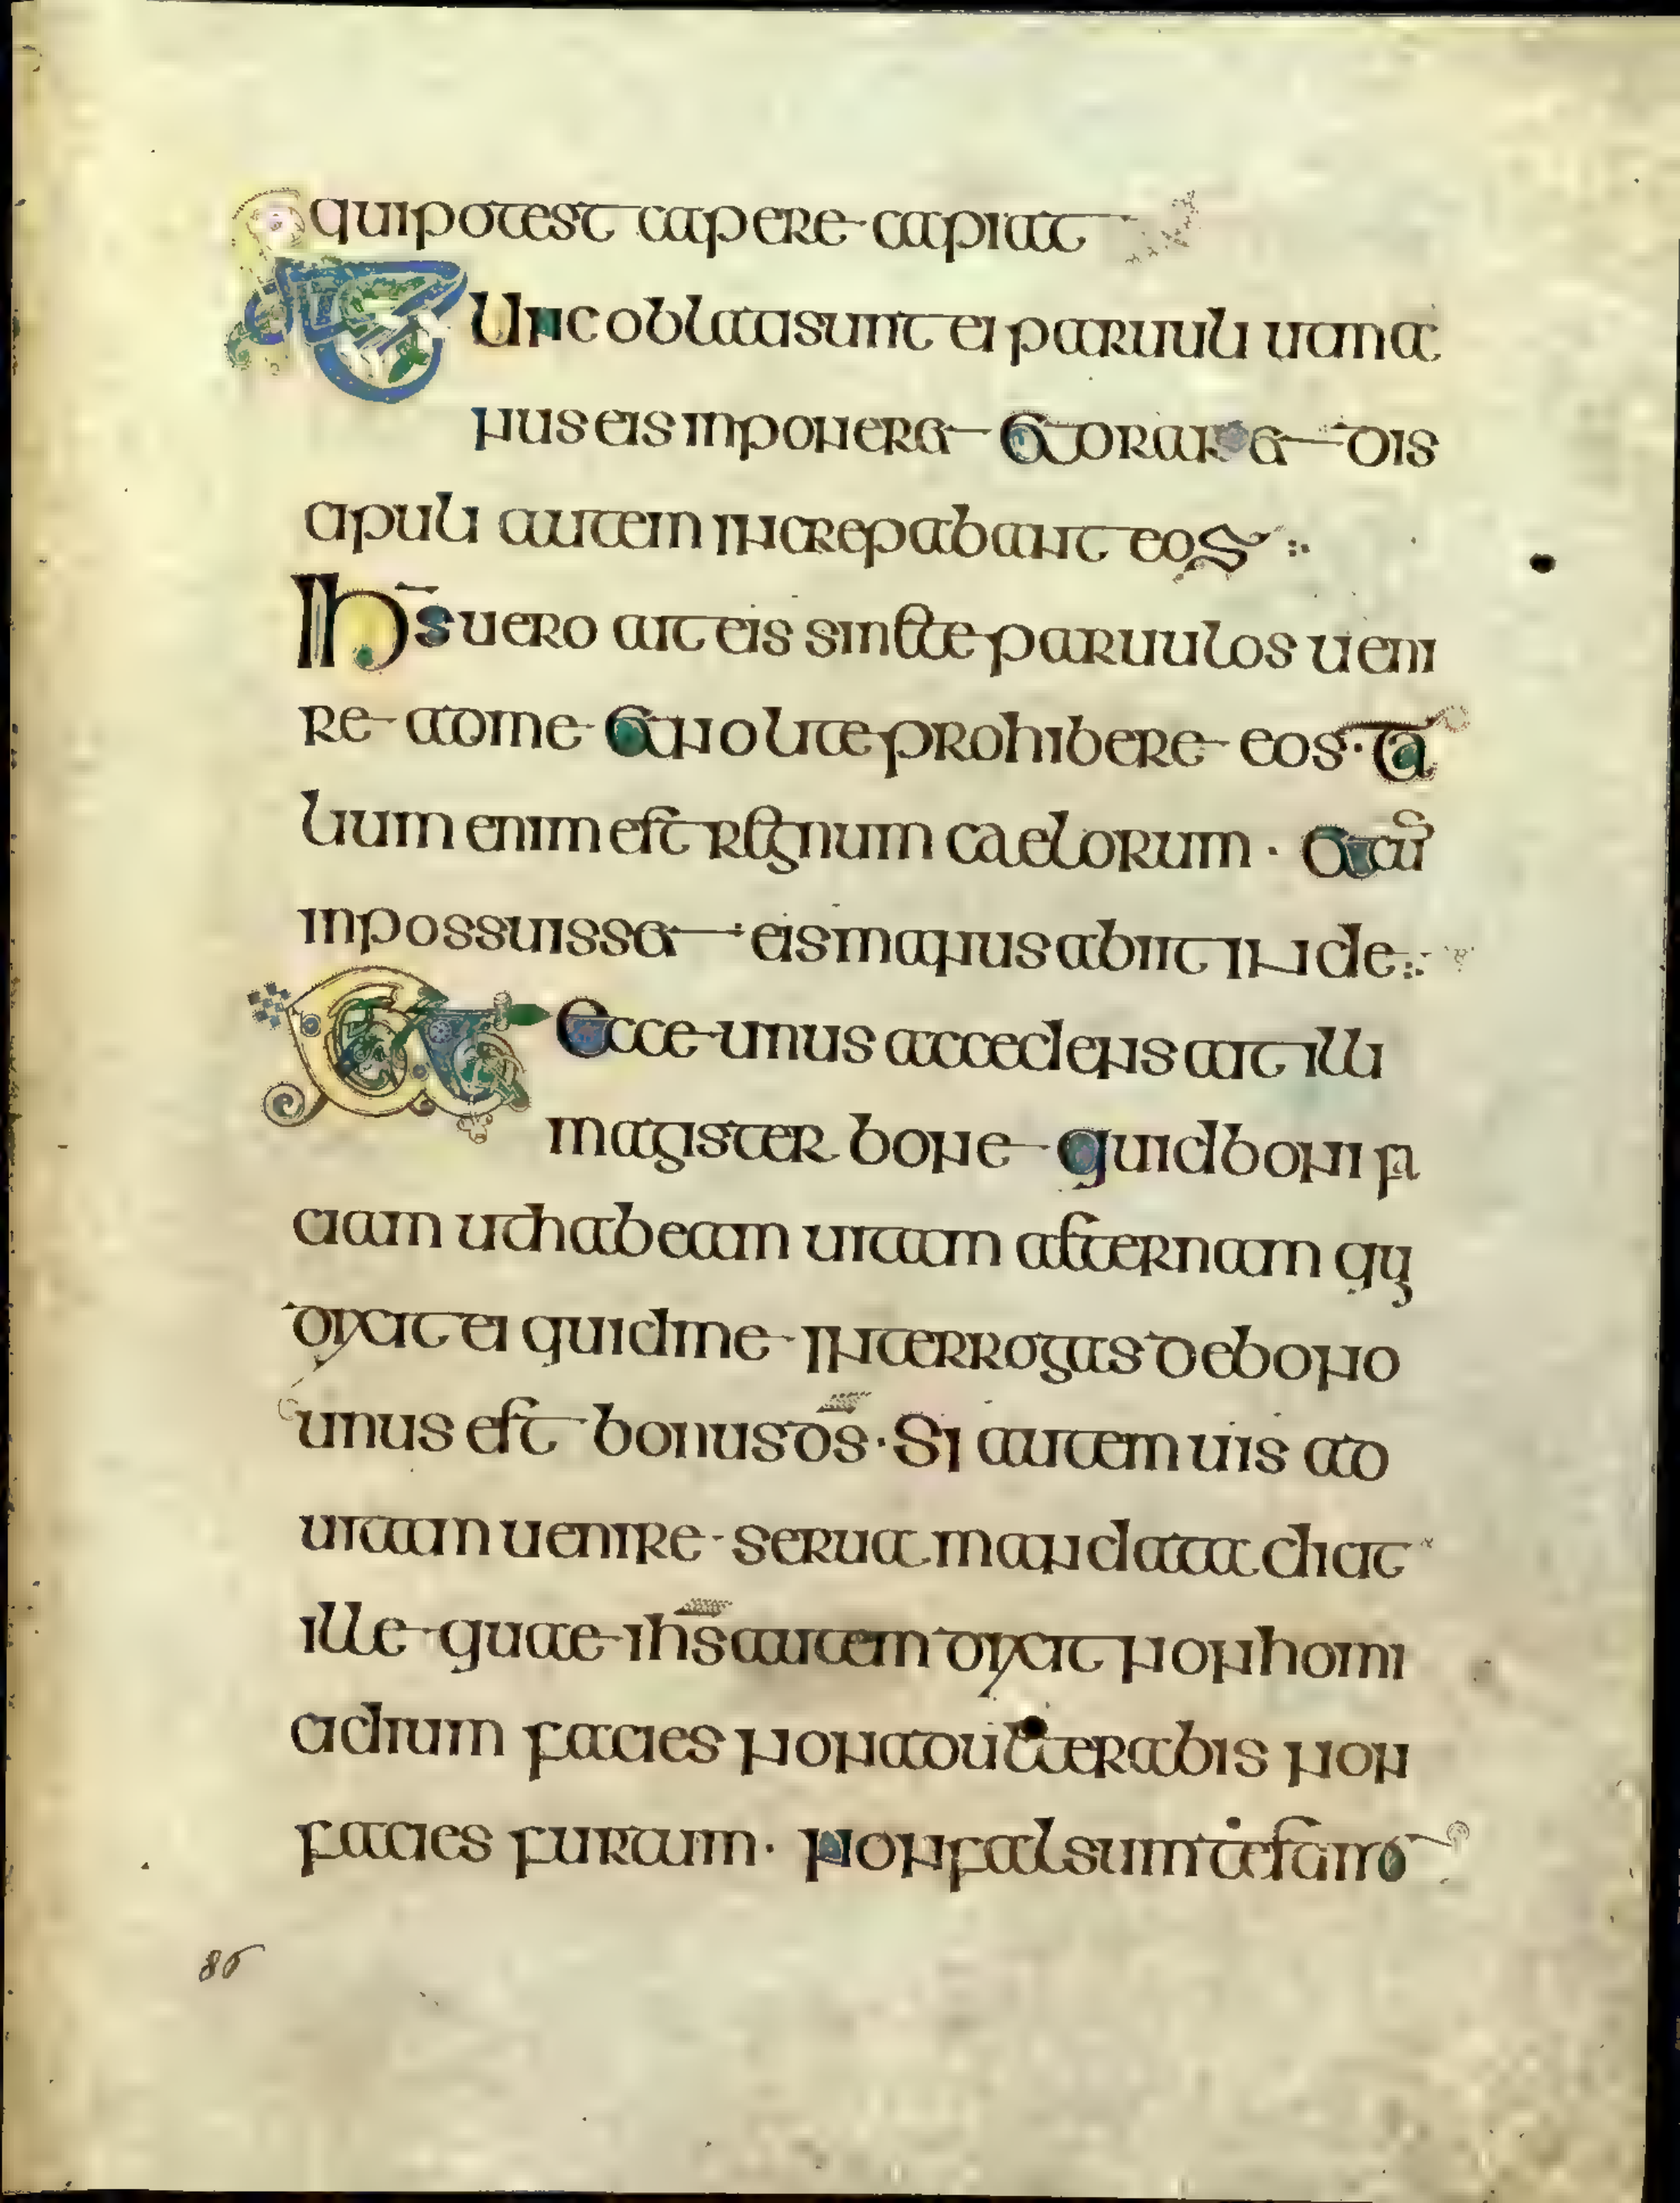 qui potest capere capiat
Tunc oblati sunt ei paruuli ut ma
nus eis inponeret et oraret dis
cipuli autem increpabant eos
ihs uero ait eis sinite paruulos ueni
re ad me et nolite prohibere eos · ta
lium enim est regnum caelorum · et cū
inpossuisset eis manus abiit inde
Et ecce unus accedens ait illi
magister bone quid boni fa
ciam ut habeam uitam aeternam qui
dixit ei quid me interrogas de bono
unus est bonus ds · Si autem uis ad
uitam uenire serua mandata dicit
ille quae ihs autem dixit non homi
cidium facies non adulterabis non
facies furtum · non falsum testimo
86